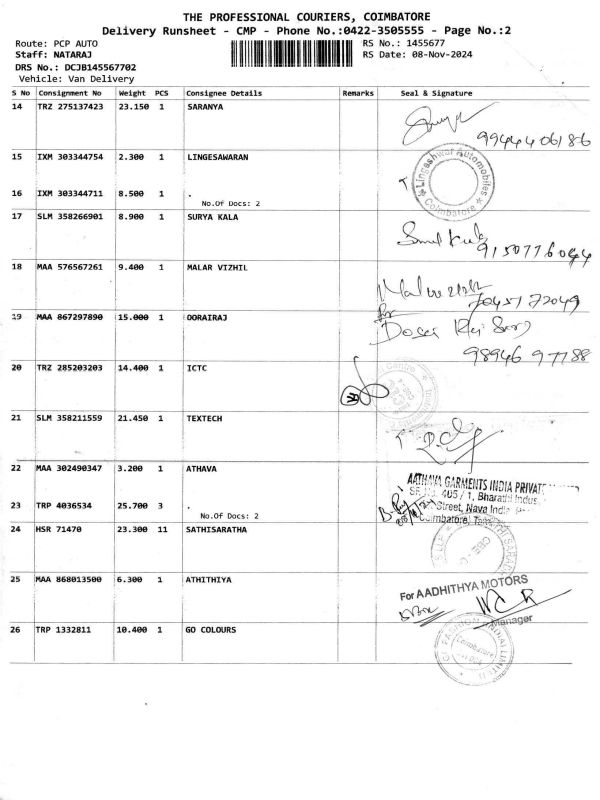 THE PROFESSIONAL COURIERS, COIMBATORE
Delivery Runsheet - CMP - Phone No.:0422-3505555 - Page No.:2
Route: PCP AUTO RS No.: 1455677
Staff: NATARAJ RS Date: 08-Nov-2024
DRS No.: DCJB145567702
Vehicle: Van Delivery
S No Consignment No Weight PCS Consignee Details Remarks Seal & Signature
14 TRZ 275137423 23.150 1 SARANYA
99444 06186
15 IXM 303344754 2.300 1 LINGESAWARAN
Lingeshwar Automobiles
Coimbatore
16 IXM 303344711 8.500 1 .
No.Of Docs: 2
17 SLM 358266901 8.900 1 SURYA KALA
9150776044
18 MAA 576567261 9.400 1 MALAR VIZHIL
7045172049
19 MAA 867297890 15.000 1 OORAIRAJ
98946 97188
20 TRZ 285203203 14.400 1 ICTC
21 SLM 358211559 21.450 1 TEXTECH
22 MAA 302490347 3.200 1 ATHAVA
AATHAVA GARMENTS INDIA PRIVATE
405 / 1, Bharathi Indus.
23 TRP 4036534 25.700 3 .
Street, Nava India
No.Of Docs: 2
Coimbatore,
24 HSR 71470 23.300 11 SATHISARATHA
25 MAA 868013500 6.300 1 ATHITHIYA
For AADHITHYA MOTORS
Manager
26 TRP 1332811 10.400 1 GO COLOURS
Coimbatore